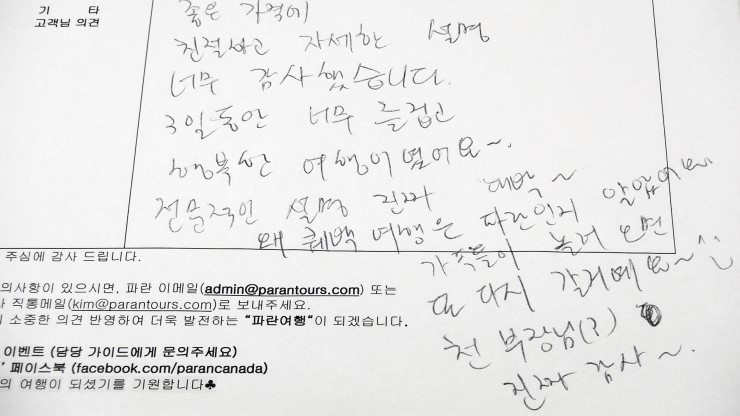 기 타
고객님 의견
좋은 가격에
친절하고 자세한 설명
너무 감사했습니다.
3일동안 너무 즐겁고
행복한 여행이였어요~.
전문적인 설명 진짜 대박~
왜 퀘백 여행은 파란인지 알았어요.
가족들이 놀러 오면
또 다시 갈거에요~^^
천 부장님(?)
진짜 감사~.
주심에 감사 드립니다.
의사항이 있으시면, 파란 이메일(admin@parantours.com) 또는
직통메일(kim@parantours.com)로 보내주세요.
소중한 의견 반영하여 더욱 발전하는 "파란여행"이 되겠습니다.
이벤트 (담당 가이드에게 문의주세요)
' 페이스북 (facebook.com/parancanada)
의 여행이 되셨기를 기원합니다♣